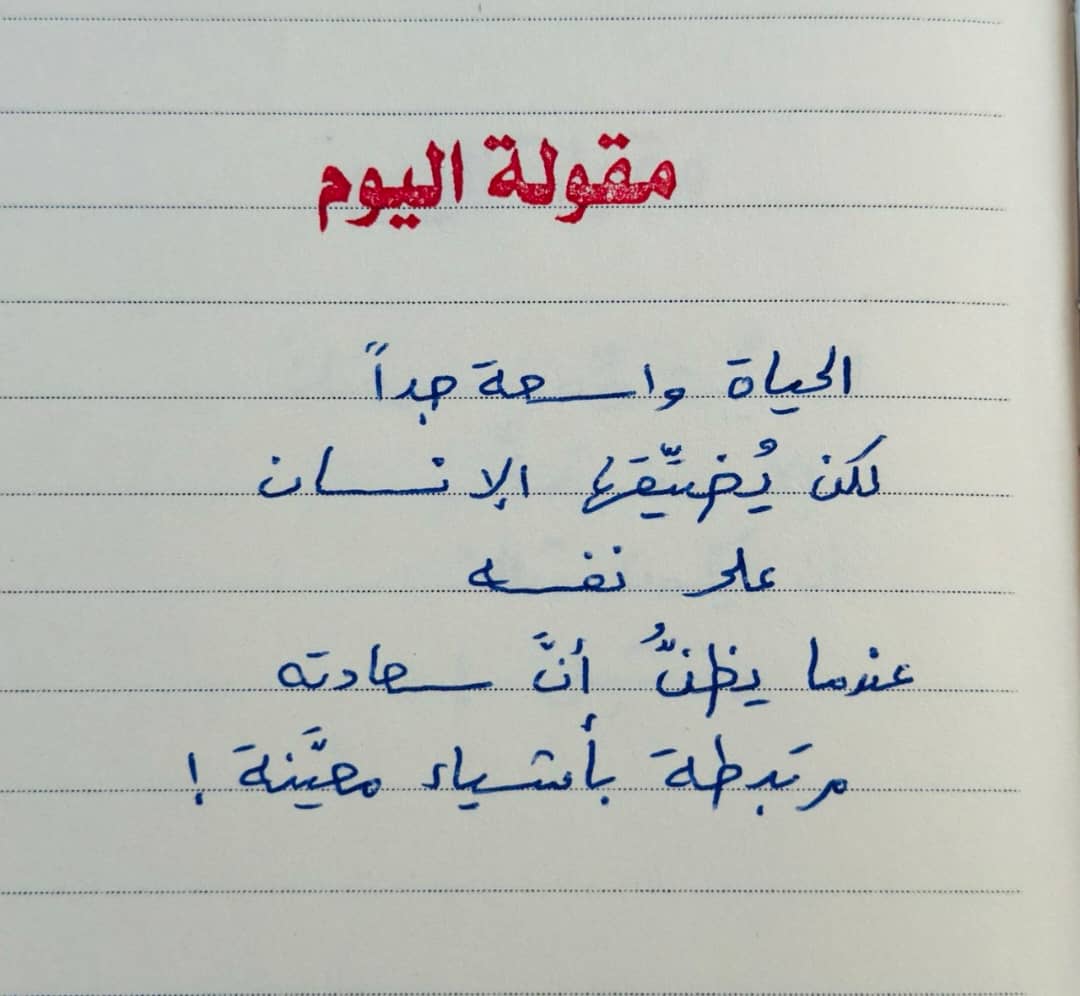 مقولة اليوم
الحياة واسعة جداً
لكن يُضيّقها الإنسان
على نفسه
عندما يظنُّ أنَّ سعادته
مرتبطة بأشياء معيَّنة !